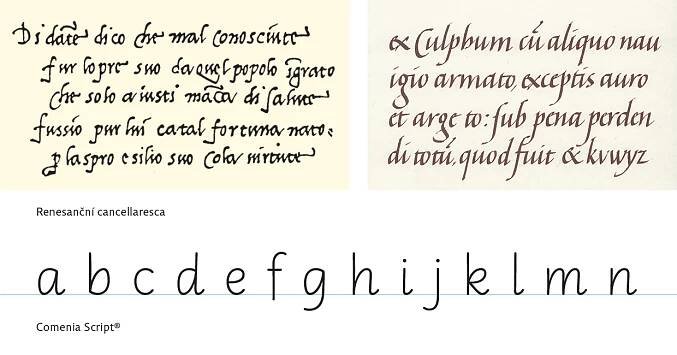 Di da᷉te dico che mal conosciute
fur lopre suo da quel popolo i᷉grato
Che solo a iusti ma᷉ca di salute
fussio pur lui c atal fortuna nato:
p laspro esilio suo Cola virtute
& Culpbum cu᷉ aliquo nau
igio armato, exceptis auro
et arge to: sub pena perden
di totu᷉, quod fuit & kvwyz
Renesanční cancellaresca
a b c d e f g h i j k l m n
Comenia Script®